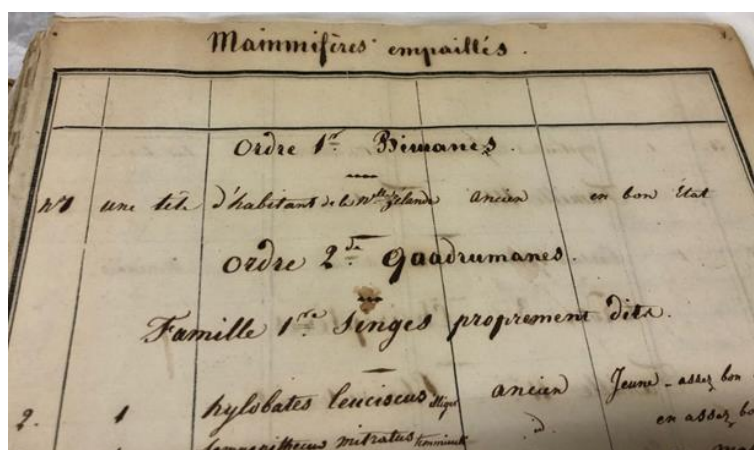 Mammifères empaillés.
Ordre 1er Bimanes.
N°1 une tête d'habitant de la Nlle Zélande ancien en bon État
Ordre 2de Quadrumanes.
Famille 1re Singes proprement dits.
2. 1 hylobates leuciscus ancien Jeune - assez bon
mitratus d. en assez